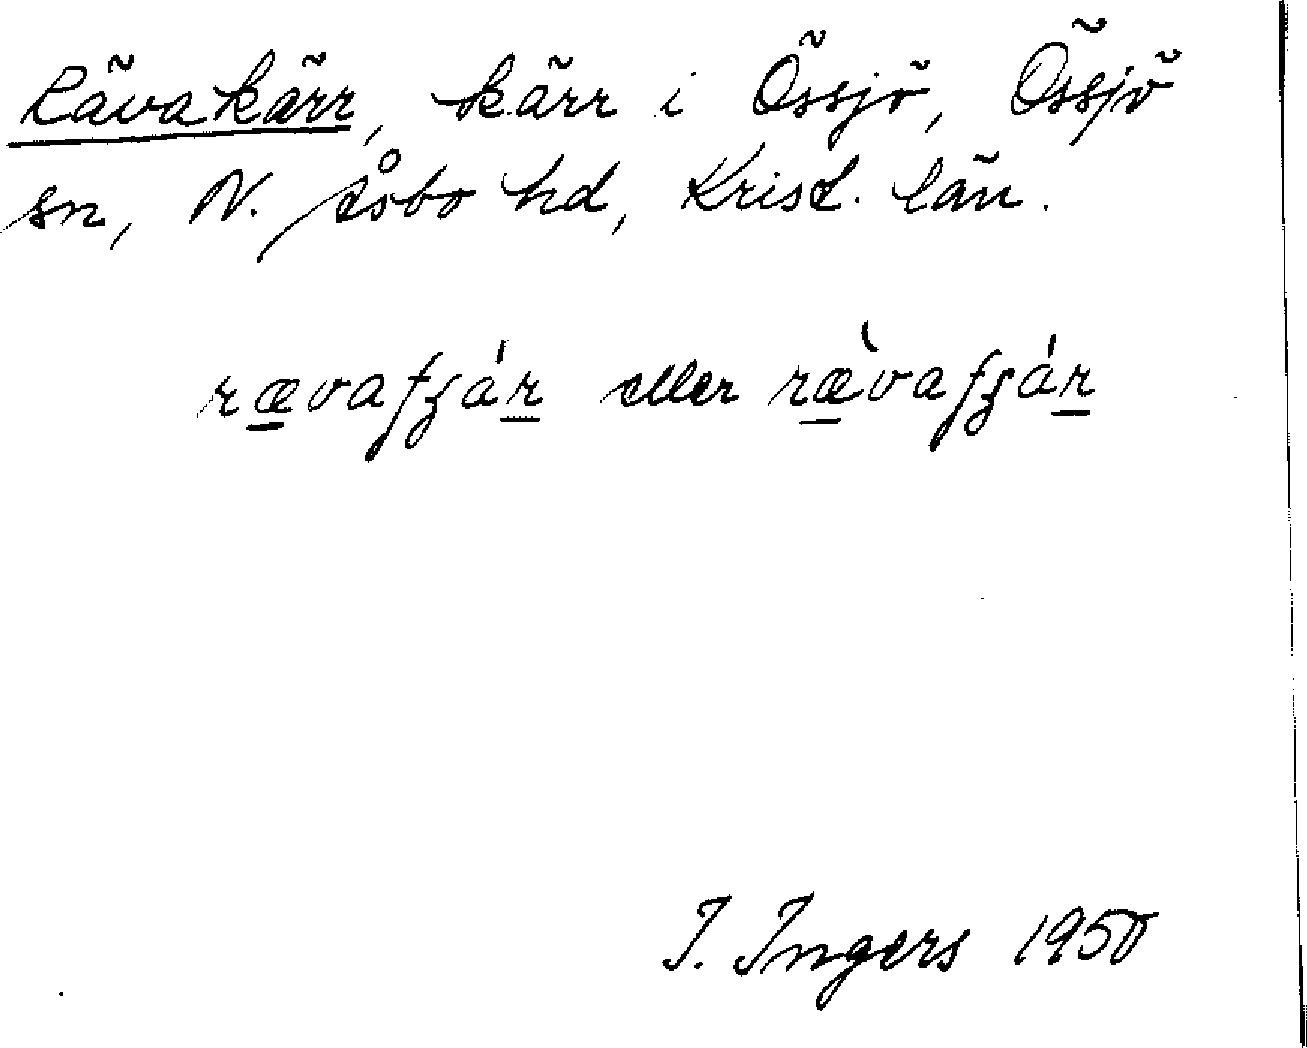 Rävakärr, kärr i Össjö, Össjö
sn, N. Åsbo hd, Krist. län.
rævafʒár eller rævafʒár
I. Ingers 1950